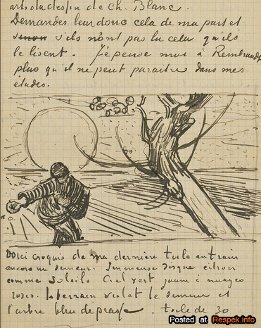 de Ch. Blanc.
Demandes leur donc cela de ma part et
s'ils n'ont pas lu cela qu'ils
le lisent. J'y pense moi à Rembrandt
plus qu'il ne peut paraitre dans mes
etudes.
Voici croquis de ma dernière toile en train
encore un semeur. Immense disque citron
comme soleil. Ciel vert jaune à nuages
roses. le terrain violet le semeur et
l'arbre bleu de prusse toile de 30
Posted at Respek.info